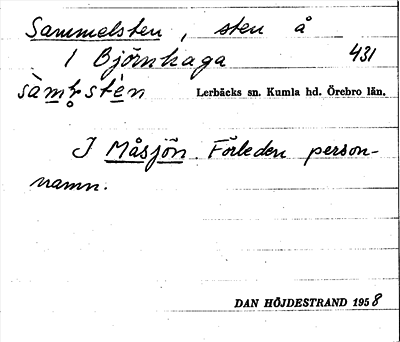 Sammelsten, sten å
1 Björnhaga 431
sàmḷstèn Lerbäcks sn. Kumla hd. Örebro län.
I Måsjön. Förleden person-
namn.
DAN HÖJDESTRAND 1958